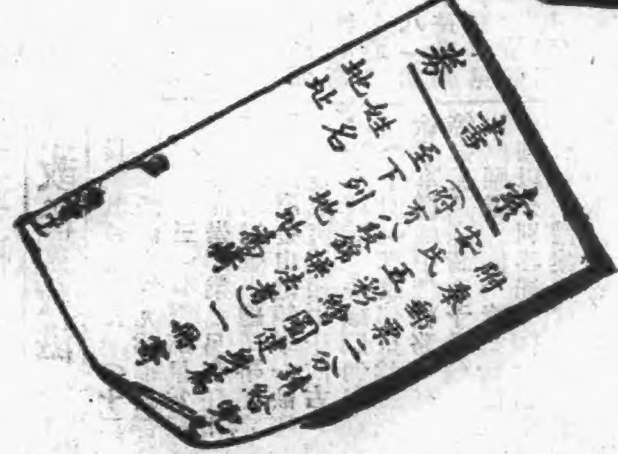 索書券
附奉郵票二分請
安氏五彩繪圖健身
(附有八段錦操法者)一冊寄
至下列地址為荷
姓名
地址